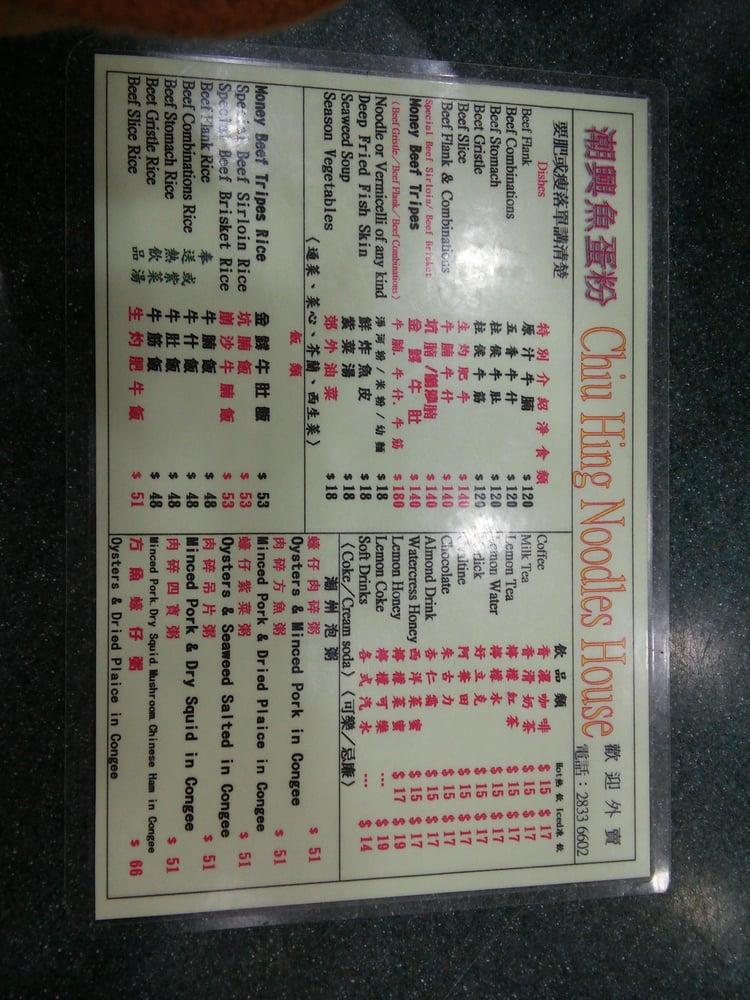 潮興魚蛋粉 Chiu Hing Noodles House 歡迎外賣
要肥或瘦落單講清楚 電話：2833 6602
Dishes 特別介紹淨食類
Beef Flank 原汁牛腩 $120
Beef Combinations 五香牛什 $120
Beef Stomach 柱候牛肚 $120
Beef Gristle 柱候牛筋 $120
Beef Slice 生灼肥牛 $140
Beef Flank & Combinations 牛腩牛什 $140
Special Beef Sirloin/ Beef Brisket 坑腩/ $140
Money Beef Tripes 金錢牛肚 $140
(Beef Gristle/Beef Flank/Beef Combinations) 牛腩、牛什、牛筋 $180
Noodle or Vermicelli of any kind 淨河粉/米粉/幼麵 $18
Deep Fried Fish Skin 鮮炸魚皮 $18
Seaweed Soup 紫菜湯 $18
Season Vegetables 郊外油菜 $18
(通菜、菜心、芥蘭、西生菜)
飯類
Money Beef Tripes Rice 金錢牛肚飯 $53
Special Beef Sirloin Rice 坑腩飯 $53
Special Beef Brisket Rice 崩沙牛腩飯 $53
Beef Flank Rice 牛腩飯 $48
Beef Combinations Rice 牛什飯 $48
Beef Stomach Rice 牛肚飯 $48
Beet Gristle Rice 牛筋飯 $48
Beef Slice Rice 生灼肥牛飯 $51
奉送熱飲品
或紫菜湯
飲品類 Hot熱飲 Iced凍飲
Coffee 香濃咖啡 $15 $17
Milk Tea 香滑奶茶 $15 $17
Lemon Tea 檸檬紅茶 $15 $17
Lemon Water 檸檬水 $15 $17
好立克 $15 $17
阿華田 $15 $17
Chocolate 朱古力 $15 $17
Almond Drink 杏仁霜 $15 $17
Watercress Honey 西洋菜蜜 $15 $17
Lemon Honey 檸檬蜜 $17 $19
Lemon Coke 檸檬可樂 … $19
Soft Drinks 各式汽水 … $14
(Coke/Cream soda) (可樂/忌廉)
潮州泡粥
蠔仔肉碎粥 $51
Oysters & Minced Pork in Congee
肉碎方魚粥 $51
Minced Pork & Dried Plaice in Congee
蠔仔紫菜粥 $51
Oysters & Seaweed Salted in Congee
肉碎吊片粥 $51
Minced Pork & Dry Squid in Congee
肉碎四寶粥 $51
Minced Pork Dry Squid Mushroom Chinese Ham in Congee
方魚蠔仔粥 $66
Oysters & Dried Plaice in Congee